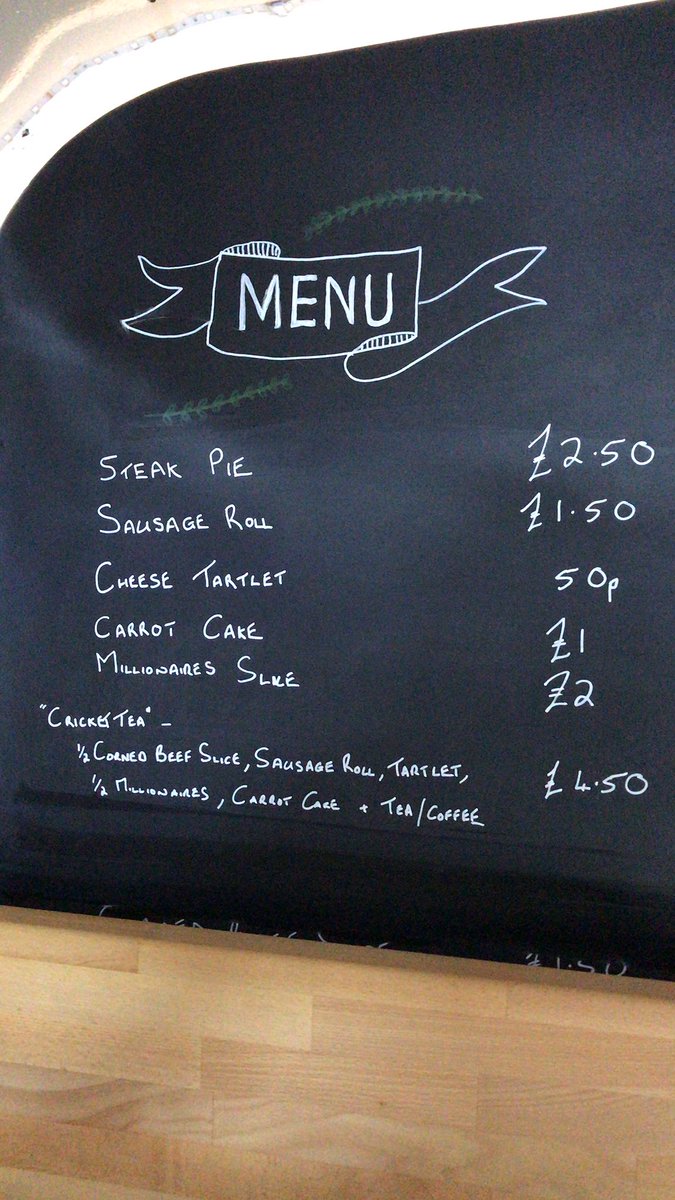 MENU
STEAK PIE £2.50
SAUSAGE ROLL £1.50
CHEESE TARTLET 50p
CARROT CAKE £1
MILLIONAIRES SLICE £2
"CRICKET TEA" -
1/2 CORNED BEEF SLICE, SAUSAGE ROLL, TARTLET, £4.50
1/2 MILLIONAIRES, CARROT CAKE + TEA/COFFEE
£1.50